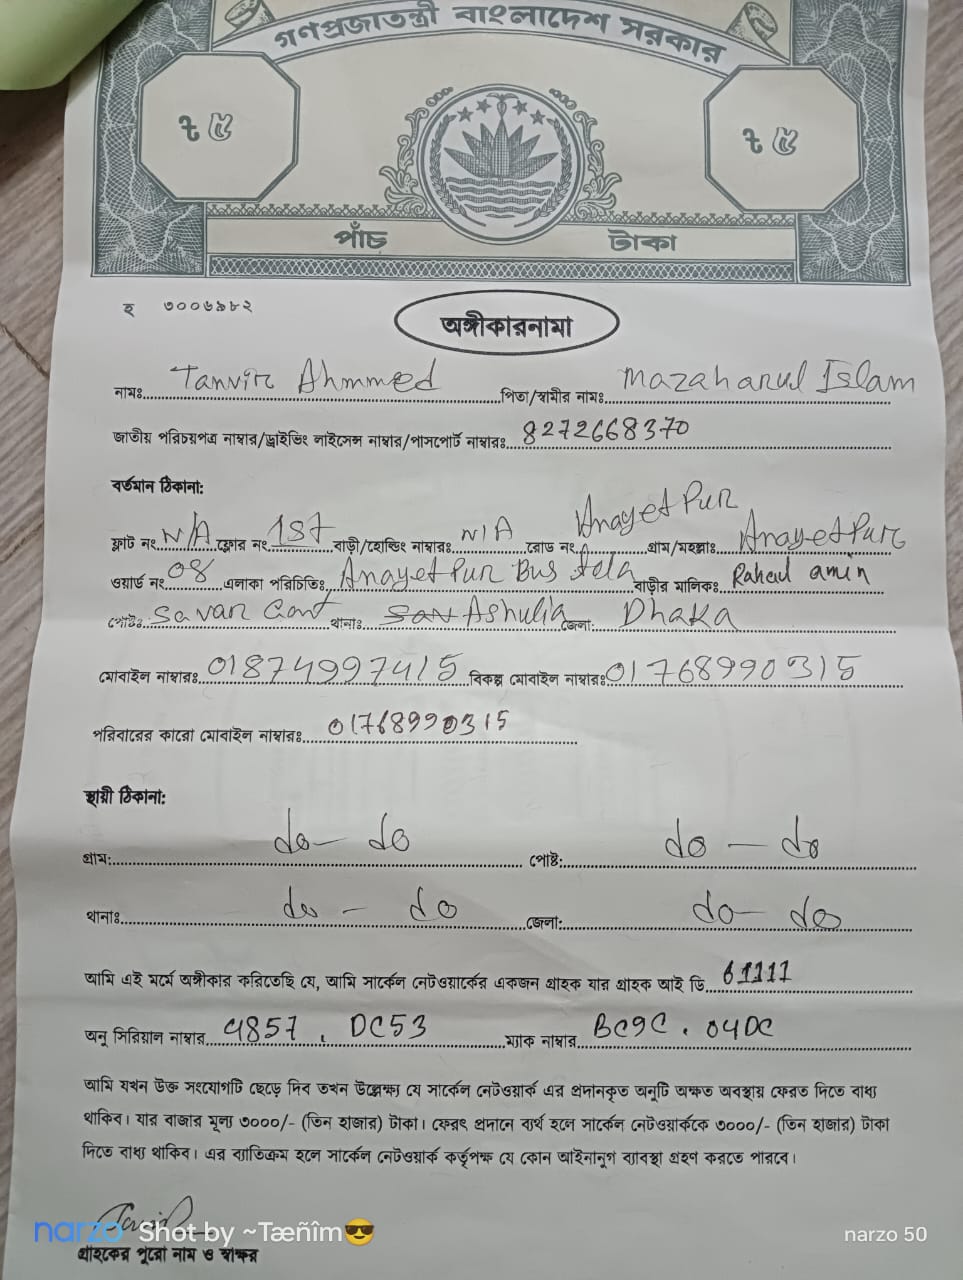 গণপ্রজাতন্ত্রী বাংলাদেশ সরকার
৳ ৫ ৳ ৫
পাঁচ টাকা
হ ৩০০৬৯৮২
অঙ্গীকারনামা
নামঃ Tanvir Ahmmed পিতা/স্বামীর নামঃ Mazaharul Islam
জাতীয় পরিচয়পত্র নাম্বার/ড্রাইভিং লাইসেন্স নাম্বার/পাসপোর্ট নাম্বারঃ 8272668370
বর্তমান ঠিকানা:
ফ্লাট নং N/A ফ্লোর নং 1st বাড়ী/হোল্ডিং নাম্বারঃ N/A রোড নং Anayet Pur গ্রাম/মহল্লাঃ Anayet Pur
ওয়ার্ড নং 08 এলাকা পরিচিতিঃ Anayet Pur Bus বাড়ীর মালিকঃ amin
পোষ্টঃ Savar Cant থানাঃ Ashulia জেলা: Dhaka
মোবাইল নাম্বারঃ 01874997415 বিকল্প মোবাইল নাম্বারঃ 01768990315
পরিবারের কারো মোবাইল নাম্বারঃ 01768990315
স্থায়ী ঠিকানা:
গ্রাম: do - do পোষ্ট: do - do
থানাঃ do - do জেলা: do - do
আমি এই মর্মে অঙ্গীকার করিতেছি যে, আমি সার্কেল নেটওয়ার্কের একজন গ্রাহক যার গ্রাহক আই ডি 61111
অনু সিরিয়াল নাম্বার 4857 . DC53 ম্যাক নাম্বার BC9C . 04DC
আমি যখন উক্ত সংযোগটি ছেড়ে দিব তখন উল্লেক্ষ্য যে সার্কেল নেটওয়ার্ক এর প্রদানকৃত অনুটি অক্ষত অবস্থায় ফেরত দিতে বাধ্য
থাকিব। যার বাজার মূল্য ৩০০০/- (তিন হাজার) টাকা। ফেরৎ প্রদানে ব্যর্থ হলে সার্কেল নেটওয়ার্ককে ৩০০০/- (তিন হাজার) টাকা
দিতে বাধ্য থাকিব। এর ব্যাতিক্রম হলে সার্কেল নেটওয়ার্ক কর্তৃপক্ষ যে কোন আইনানুগ ব্যাবস্থা গ্রহণ করতে পারবে।
narzo Shot by ~Tæñîm😎 narzo 50
গ্রাহকের পুরো নাম ও স্বাক্ষর